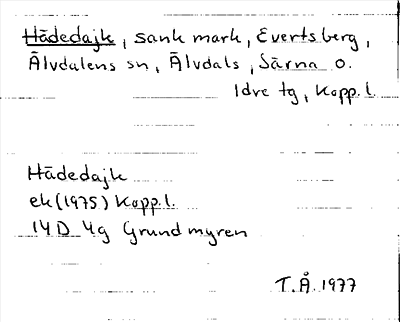 Hädedajk, sank mark, Evertsberg,
Älvdalens sn, Älvdals, Särna o.
Idre tg, Kopp.l.
Hädedajk
ek(1975) Kopp.l.
14D 4g Grundmyren
T.Å. 1977